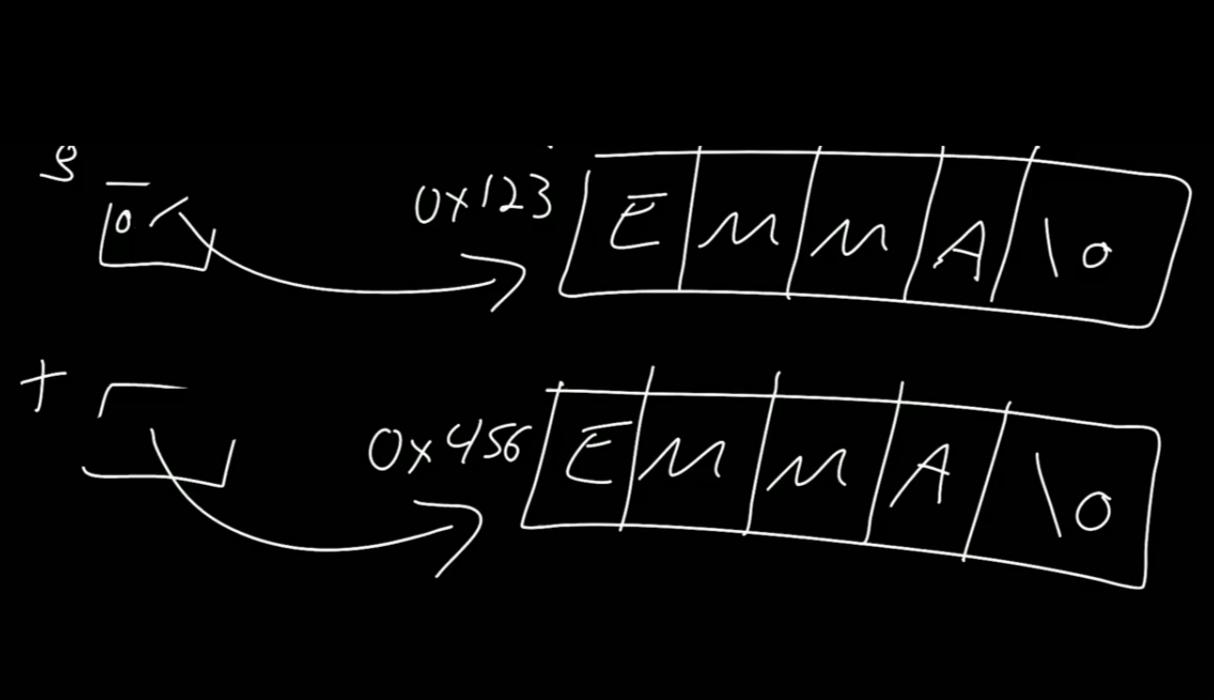 s 0x123 E M M A \0
t 0x456 E M M A \0